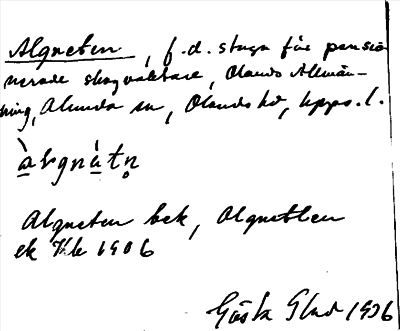 Algneten, f.d. stuga för pensio
nerade skogvaktare, Olands Allmän-
ning, Alunda sn, Olands hd, Upps. l.
àlgnàtn̥
Algneten bek, Algnetten
ek Hk 1906
Gösta Glad 1936